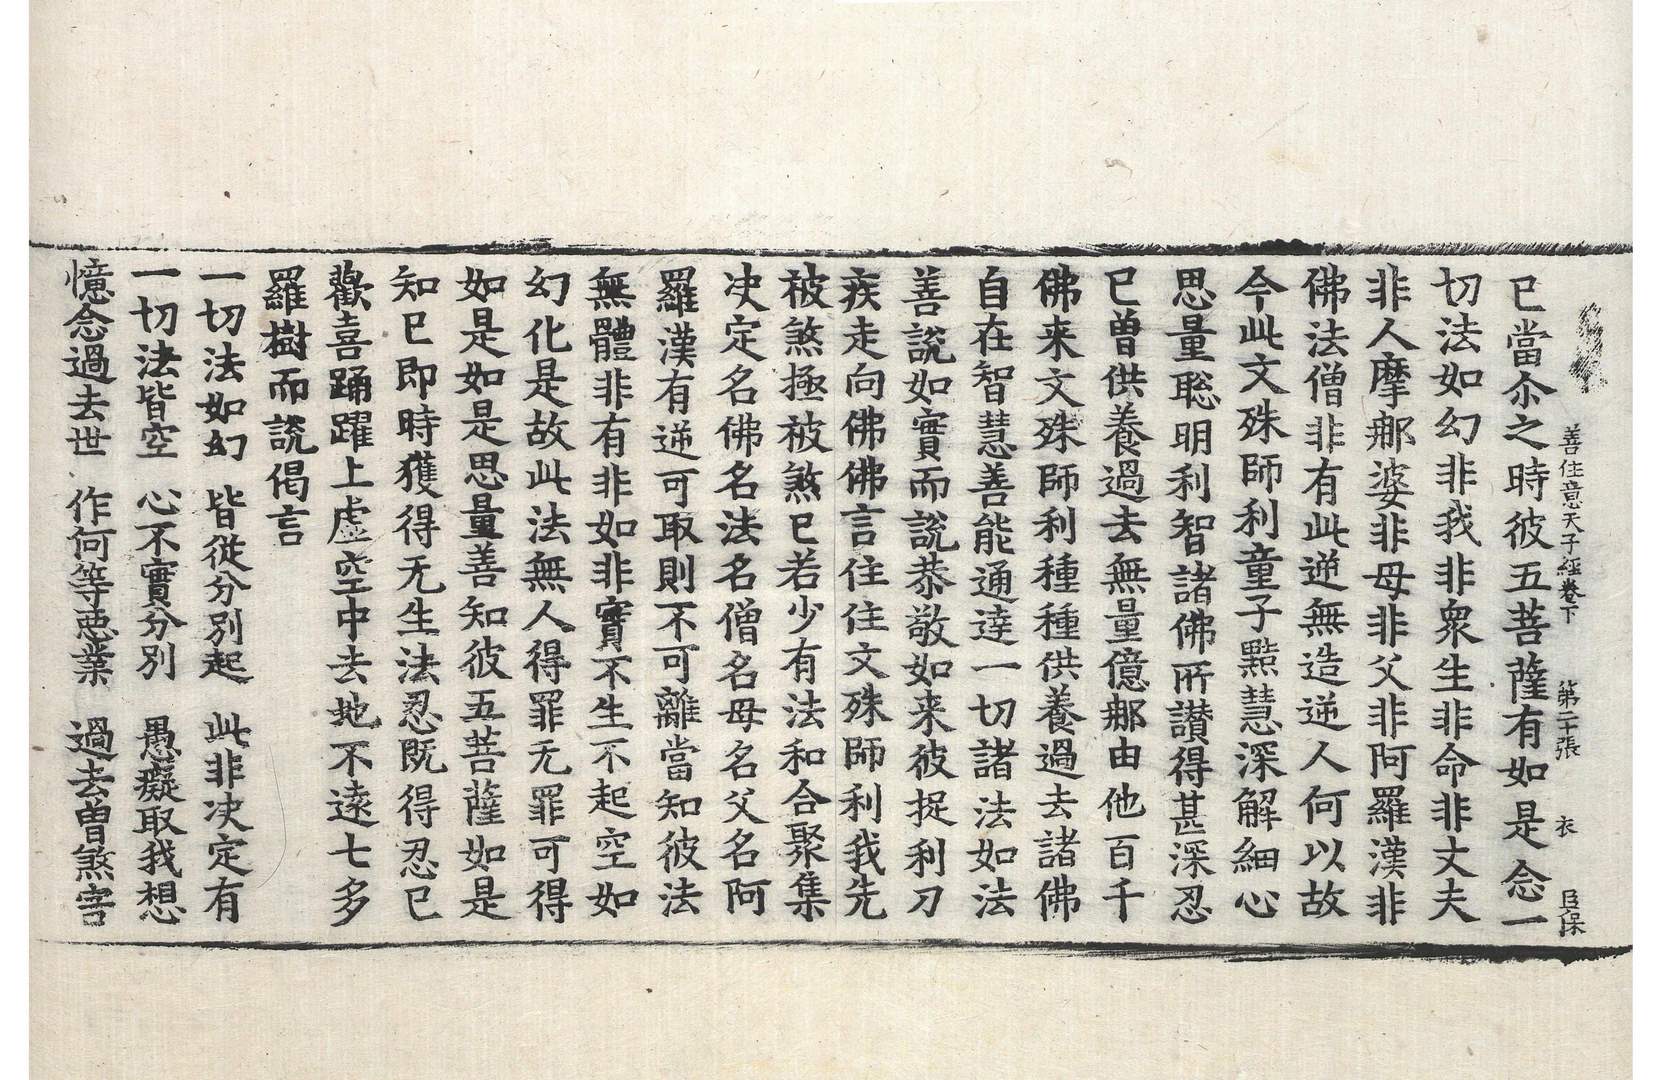 善住意天子經卷下　第二十張　衣　臣保
已當尒之時彼五菩薩有如是念一
切法如幻非我非衆生非命非丈夫
非人摩𨚗婆非母非父非阿羅漢非
佛法僧非有此逆無造逆人何以故
今此文殊師利童子黠慧深解細心
思量聡明利智諸佛所讃得甚深忍
已曽供養過去無量億𨚗由他百千
佛来文殊師利種種供養過去諸佛
自在智慧善能通達一切諸法如法
善說如實而說恭敬如来彼捉利刀
疾走向佛佛言住住文殊師利我先
被煞極被煞已若少有法和合聚集
决定名佛名法名僧名母名父名阿
羅漢有逆可取則不可離當知彼法
無體非有非如非實不生不起空如
幻化是故此法無人得罪无罪可得
如是如是思量善知彼五菩薩如是
知已即時獲得无生法忍既得忍已
歡喜踊躍上虛空中去地不遠七多
羅樹而說偈言
一切法如幻　皆從分別起　此非决定有
一切法皆空　心不實分別　愚癡取我想
憶念過去世　作何等惡業　過去曽煞害